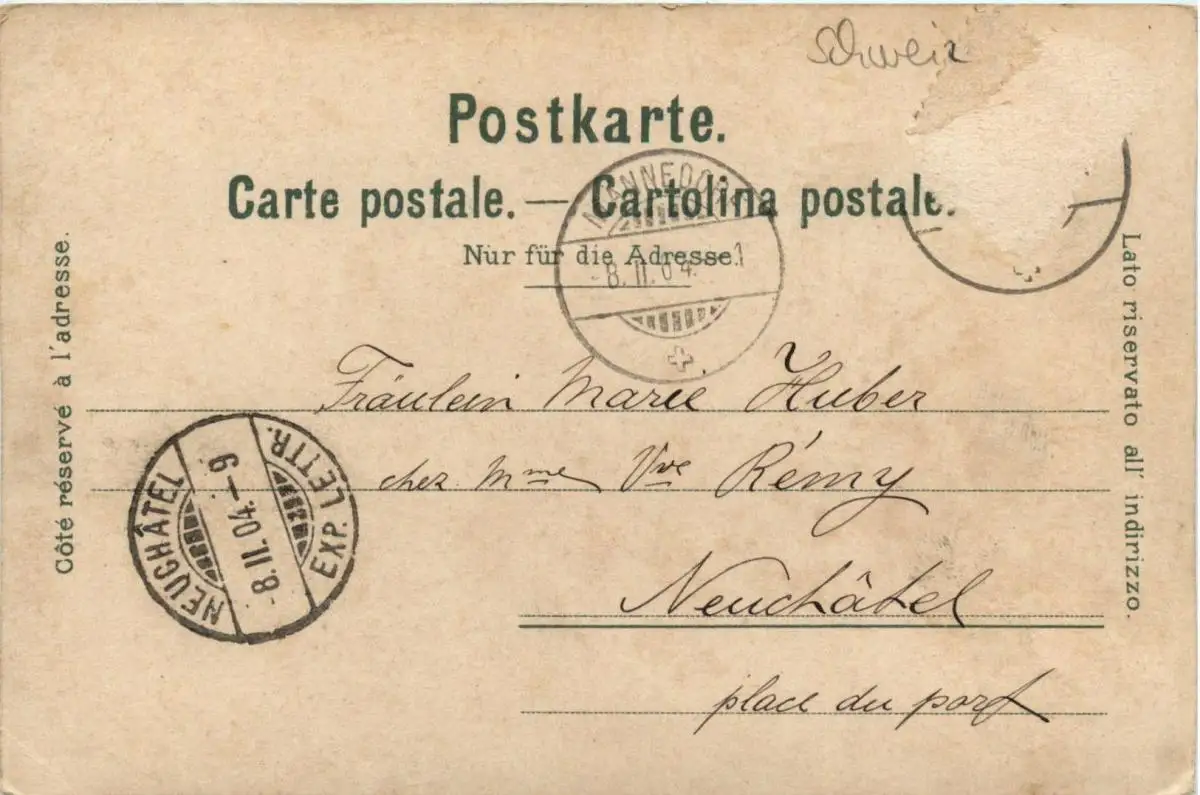 Schweiz
Postkarte.
Carte postale. — Cartolina postale.
Nur für die Adresse.
MÄNNEDORF
-8.II.04. 1
Côté réservé à l'adresse.
Lato riservato all' indirizzo.
Fräulein Marie Huber
chez Mme Vve Rémy
Neuchâtel
place du port
NEUCHÂTEL
-8.II.04.-9
EXP. LETTR.